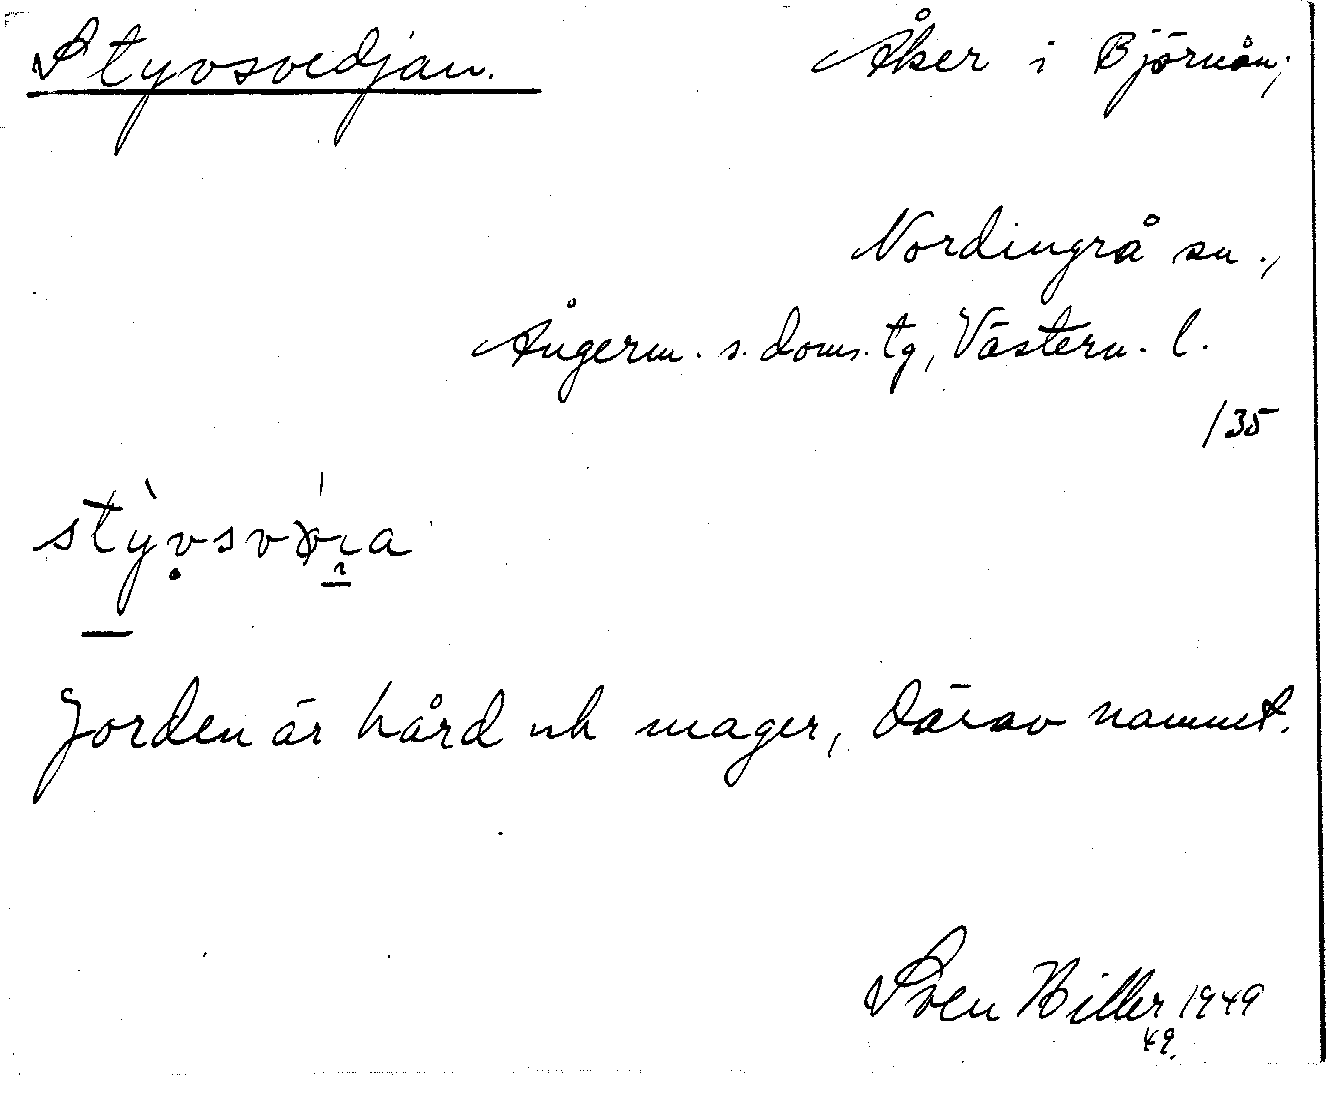 Styvsvedjan.
Åker i Björnån;
Nordingrå sn.,
Ångerm. s. doms. tg, Västern. l.
/35
Jorden är hård och mager, därav namnet.
Sven Hiller 1949
49.